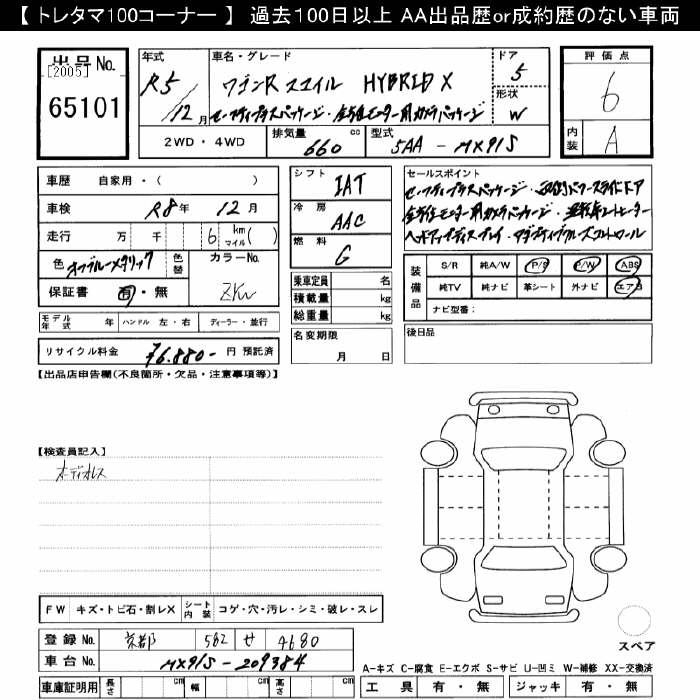 【 トレタマ100コーナー 】 過去100日以上 AA出品歴or成約歴のない車両
出品No.
[2005]
65101
年式 車名・グレード ドア
R5 ワゴンR スマイル HYBRID X 5
形状
12月 セーフティプラスパッケージ・全方位モニター用カメラパッケージ W
評価点
6
内装 A
2WD・4WD 排気量 660 cc 型式 5AA - MX91S
車歴 自家用・( )
車検 R8年 12月
走行 万 千 6 km マイル( )
色 オフブルーメタリック 色替 カラーNo.
保証書 有・無 ZKW
モデル年式 年 ハンドル 左・右 ディーラー・並行
リサイクル料金 ¥6.880- 円 預託済
シフト IAT
冷房 AAC
燃料 G
乗車定員 名
積載量 kg
総重量 kg
名変期限
月 日
セールスポイント
セーフティプラスパッケージ・両側パワースライドドア
全方位モニター用カメラパッケージ・運転席シートヒーター
ヘッドアップディスプレイ・アダプティブクルーズコントロール
装備品 S/R 純A/W P/S P/W ABS
純TV 純ナビ 革シート 外ナビ エアB
ナビ型番：
後日品
【出品店申告欄(不良箇所・欠品・注意事項等)】
【検査員記入】
オーディオレス
FW キズ・トビ石・割レX シート内装 コゲ・穴・汚レ・シミ・破レ・スレ
登録No. 京都 582 せ 4680
車台No. MX91S-209384
車庫証明用 長さ cm 幅 cm 高さ cm
スペア
A-キズ C-腐食 E-エクボ S-サビ U-凹ミ W-補修 XX-交換済
工具 有・無 ジャッキ 有・無